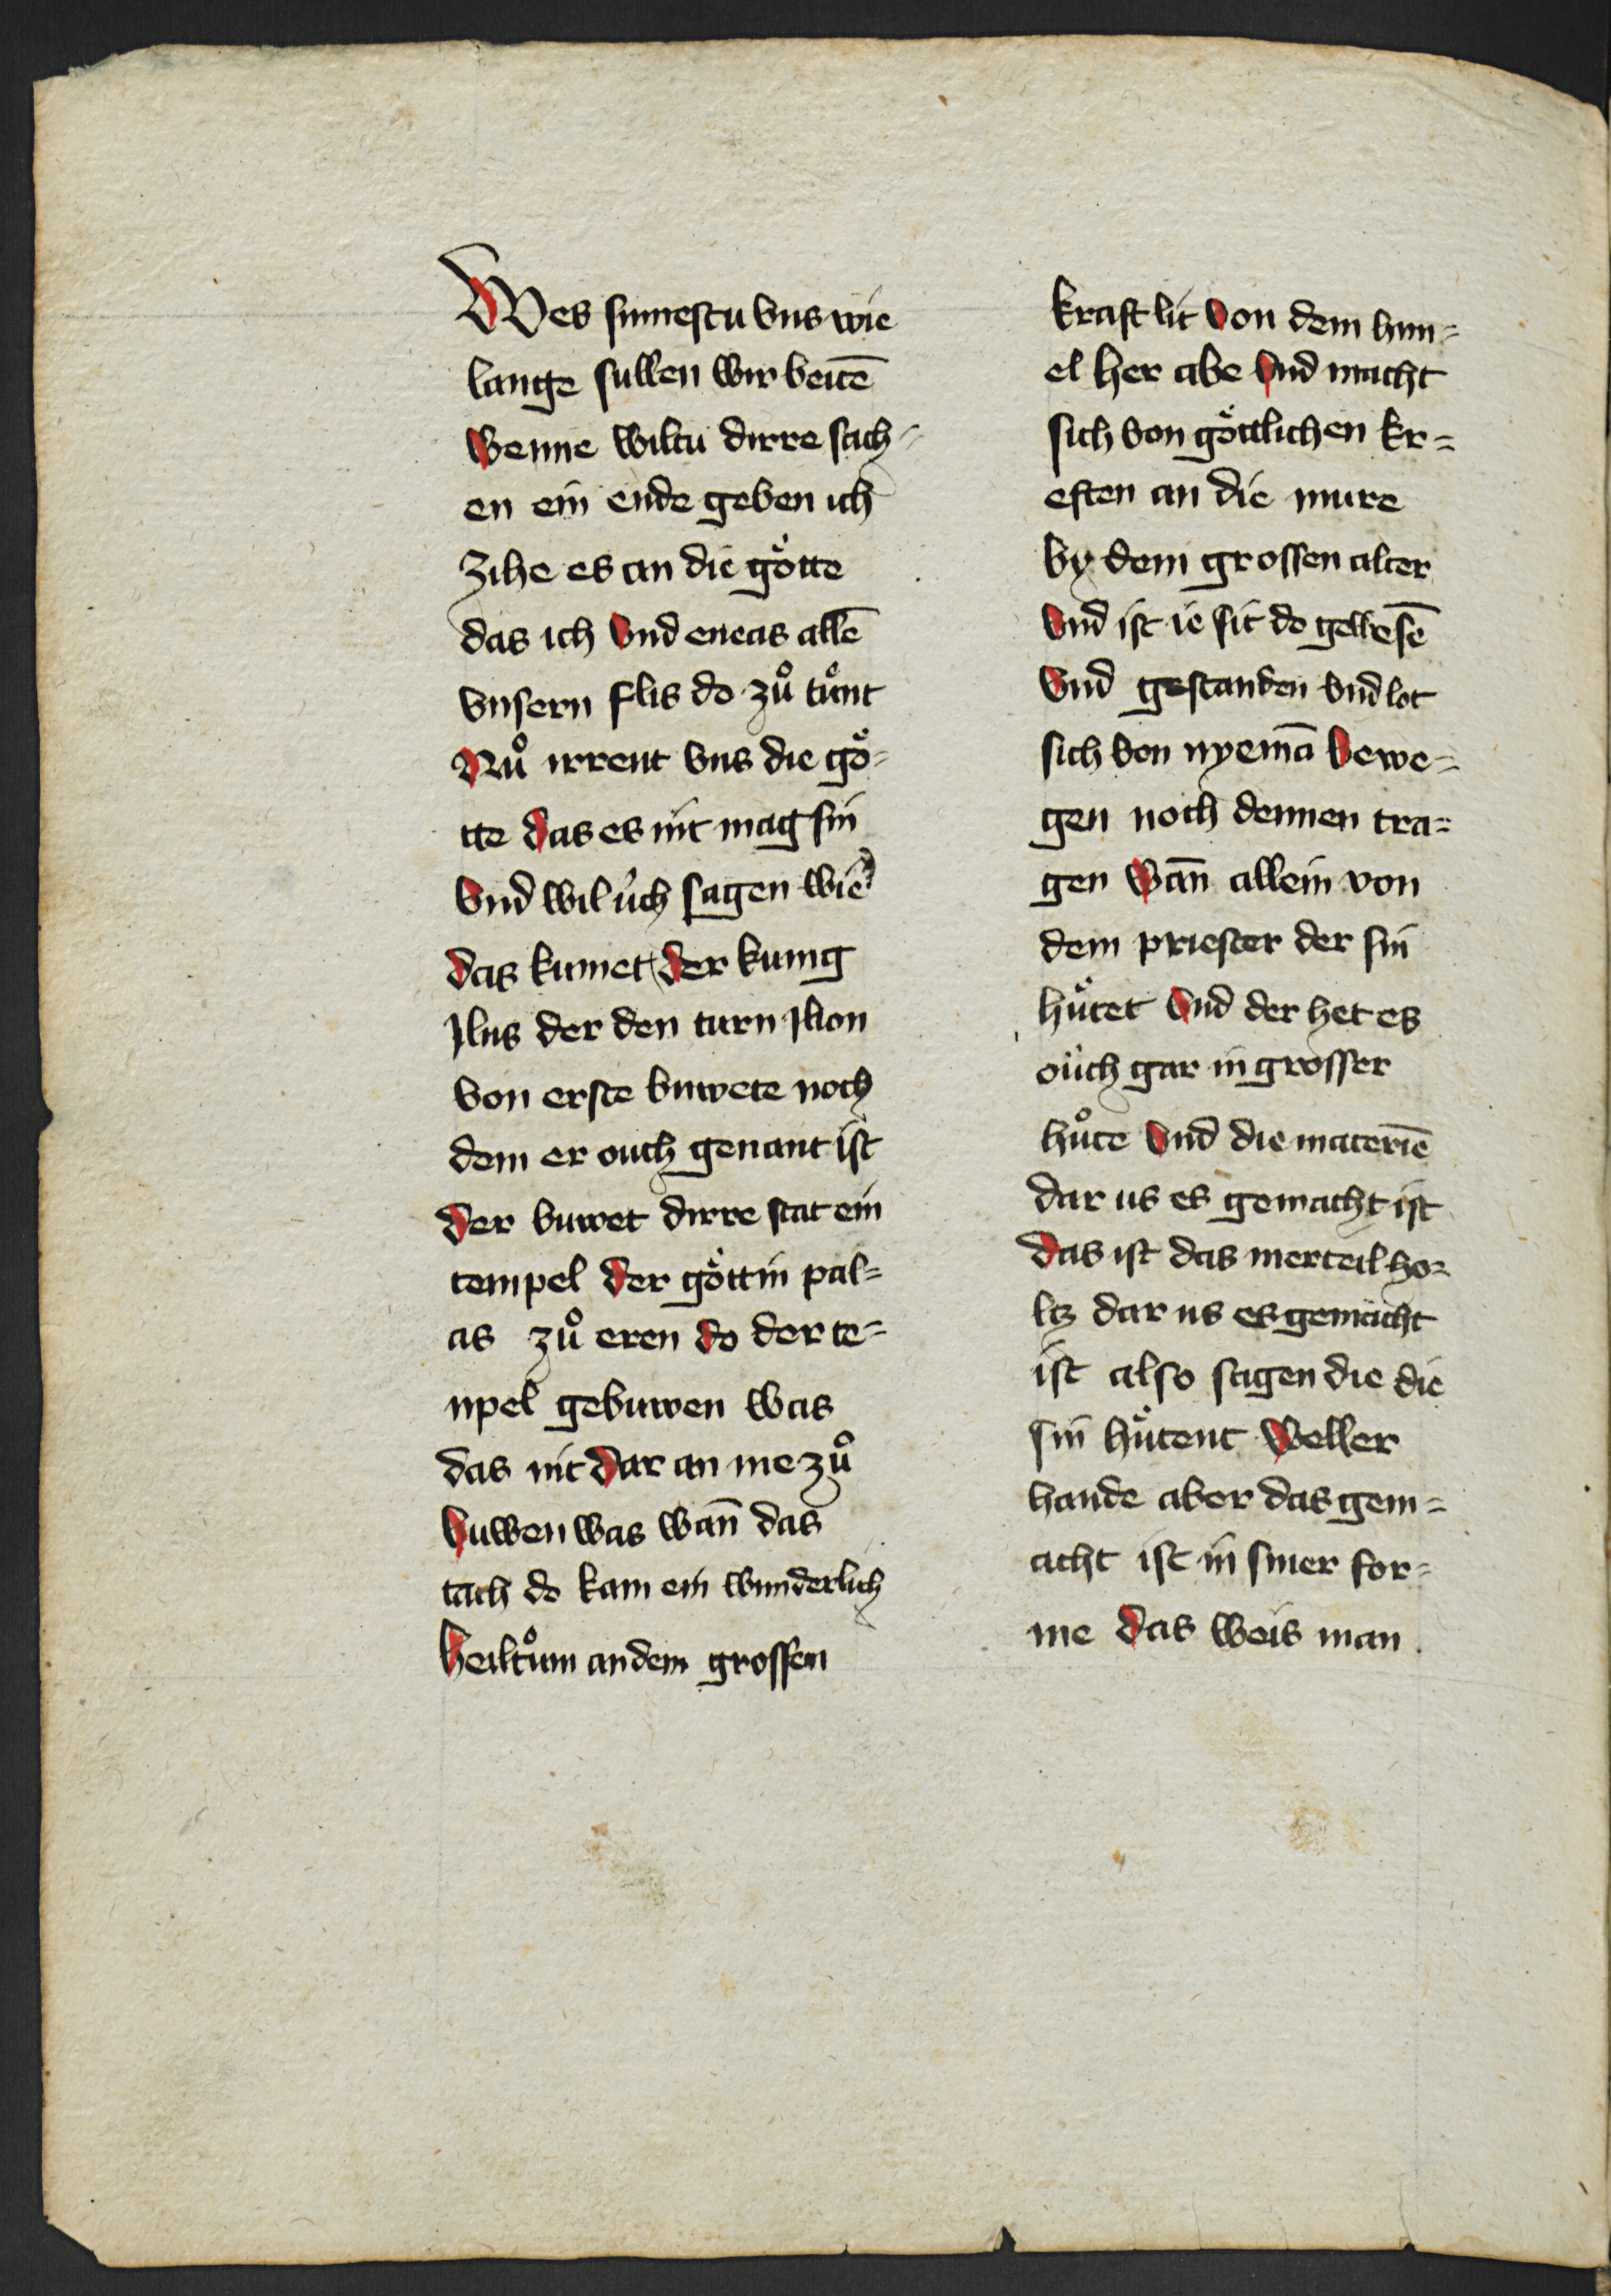 Wes sumestu vns wie
lange sullen wir beitē
wenne wiltu dirre sach=
en ein ende geben ich
zihe es an die goͤtte
das ich vnd eneas allē
vnsern flis do zuͦ tuͤnt
Nuͦ irrent vns die goͤ=
tte das es nit mag sin
vnd wil uͤch sagen wie
das kumet der kunig
Jlus der den turn Jlion
von erste buwete noch
dem er ouch genant ist
der buwet dirre stat ein
tempel der goͤttin pal=
as zuͦ eren do der te=
mpel gebuwen was
das nit dar an me zuͦ
buwen was wan̄ das
tach do kam ein wunderlich
heiltuͦm an dem grossen
kraft lit von dem him=
el her abe vnd macht
sich von goͤttlichen kr=
eften an die mure
by dem grossen alter
vnd ist ie sit do gewesē
vnd gestanden vnd lot
sich von nyemā bewe=
gen noch dennen tra=
gen wan̄ allein von
dem priester der sin
huͤtet vnd der het es
ouch gar in grosser
huͦte vnd die materiē
dar us es gemacht ist
das ist das merteil ho=
ltz dar us es gemacht
ist also sagen die die
sin huͤtent weller
hande aber das gem=
acht ist in siner for=
me das weis man